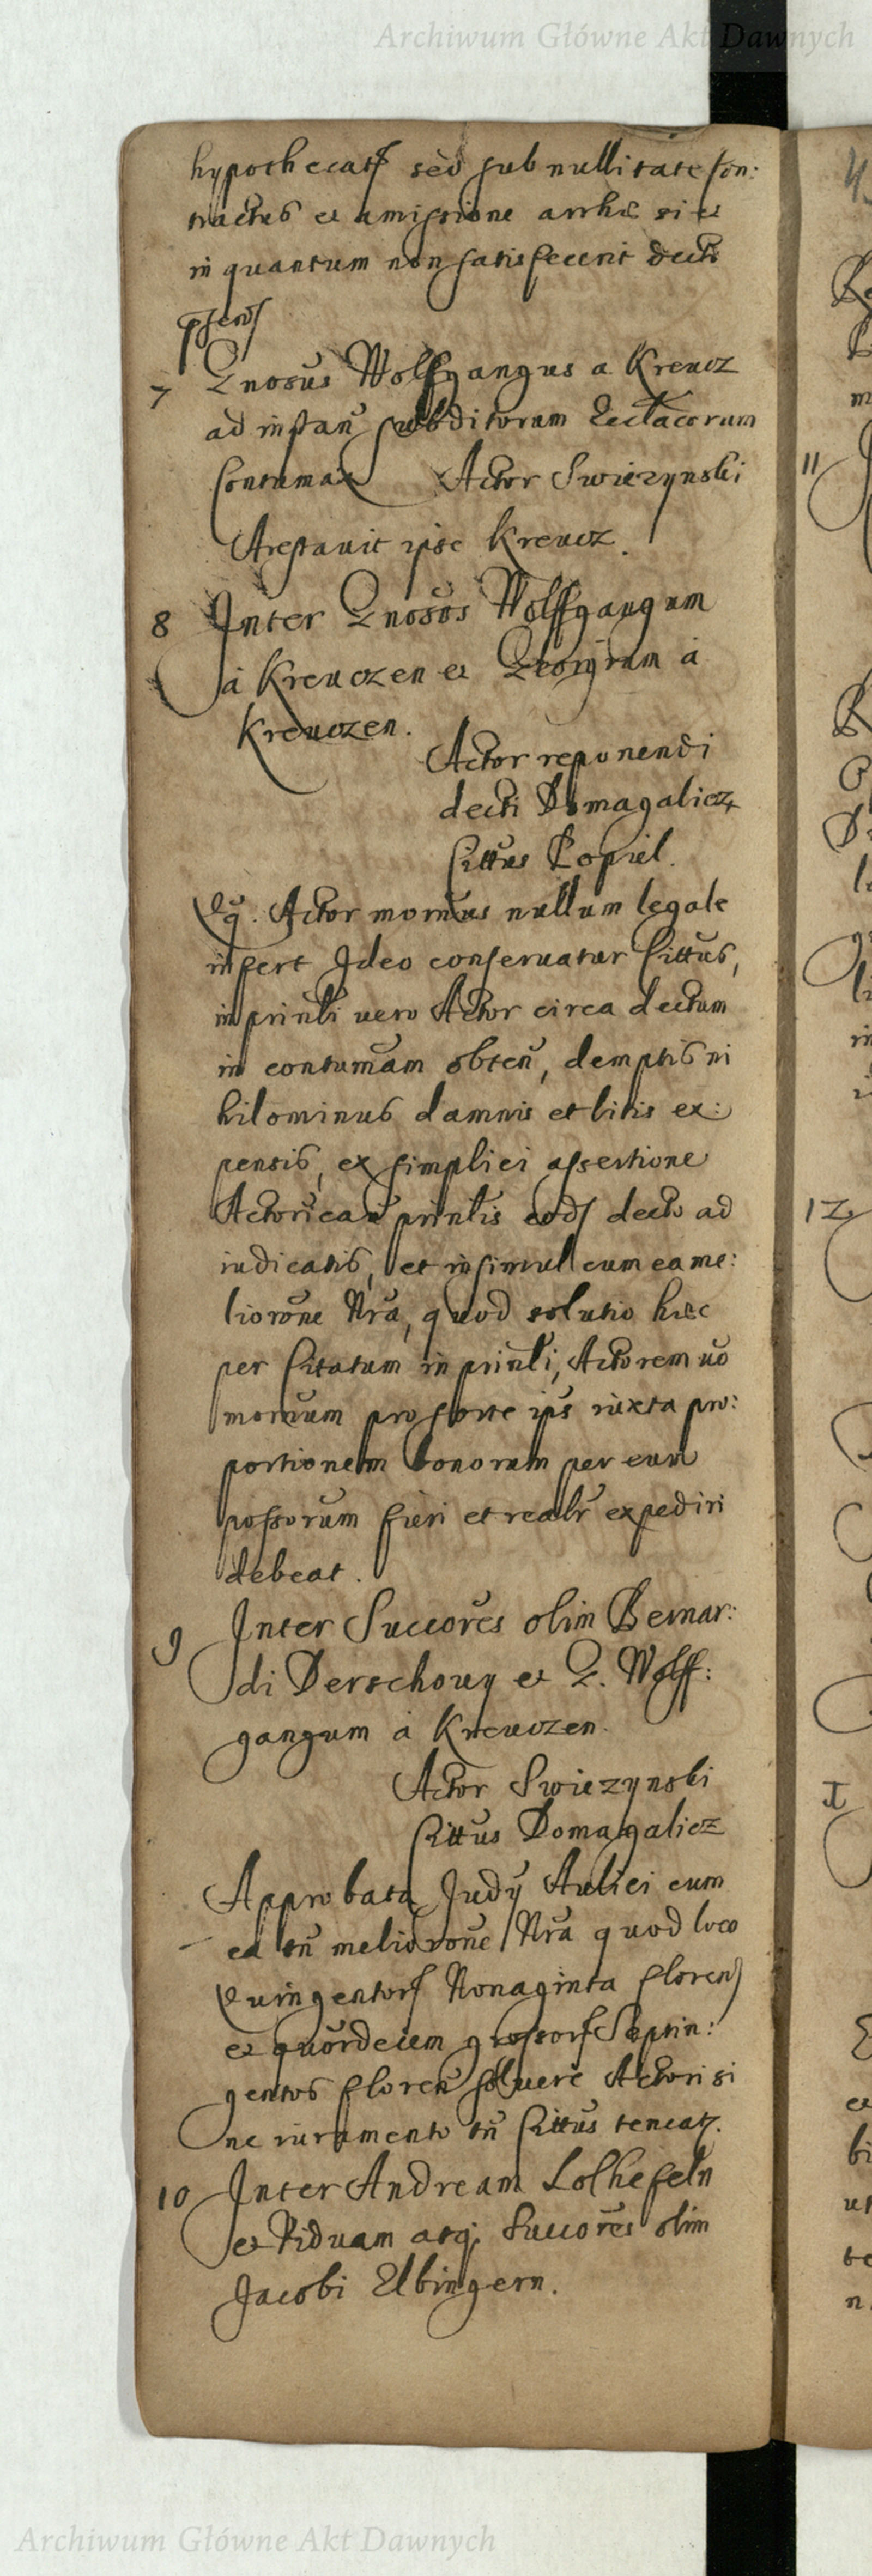 Archiwum Główne Akt Dawnych
hypothecatʃ sed sub nullitate Con:
tractus et amissione arrhæ si et
in quantum non satisfecerit decto
pñenʃ
7 Gnosus Wolfgangus a Kreucz
ad instañ subditorum
Contumax Actor Swiezynski
Arestavit ipse Kreucz.
8 Inter Gnosos Wolffgangum
à Kreuczen et Georgium à
Kreuczen.
Actor reponendi
decti Domagalicz
Cittus Popiel.
Qq. Actor moñus nullum legale
infert Ideo conservatur Cittus,
in prinli vero Actor circa dectum
in contumam obteñ, demptis ni
hilominus damnis et litis ex:
pensis, ex simplici assertione
prinlis eodʃ decto ad
iudicatis, et insimul cum ea me:
lioroñe Nra, quod solutio hæc
per Citatum in prinli, Actorem vo
moñum pro sorte ips iuxta pro:
portionem bonorum per eum
possorum fieri et realr expediri
debeat.
9 Inter Succores olim Bernar:
di Derschouy et G. Wolff:
gangum à Kreuczen.
Actor Swiezynski
Cittus Domagalicz
Approbata Judy Aulici cum
ea tñ meliorone Nra quod loco
Quingentorʃ Nonaginta florenʃ
et quordecim grossorʃ Septin:
gentos floreñ solvere Actori si
ne iuramento tñ Cittus teneatʒ.
10 Inter Andream Lolhefeln
et Viduam atqʒ Succores olim
Jacobi Elbingern.
11
12
Archiwum Główne Akt Dawnych